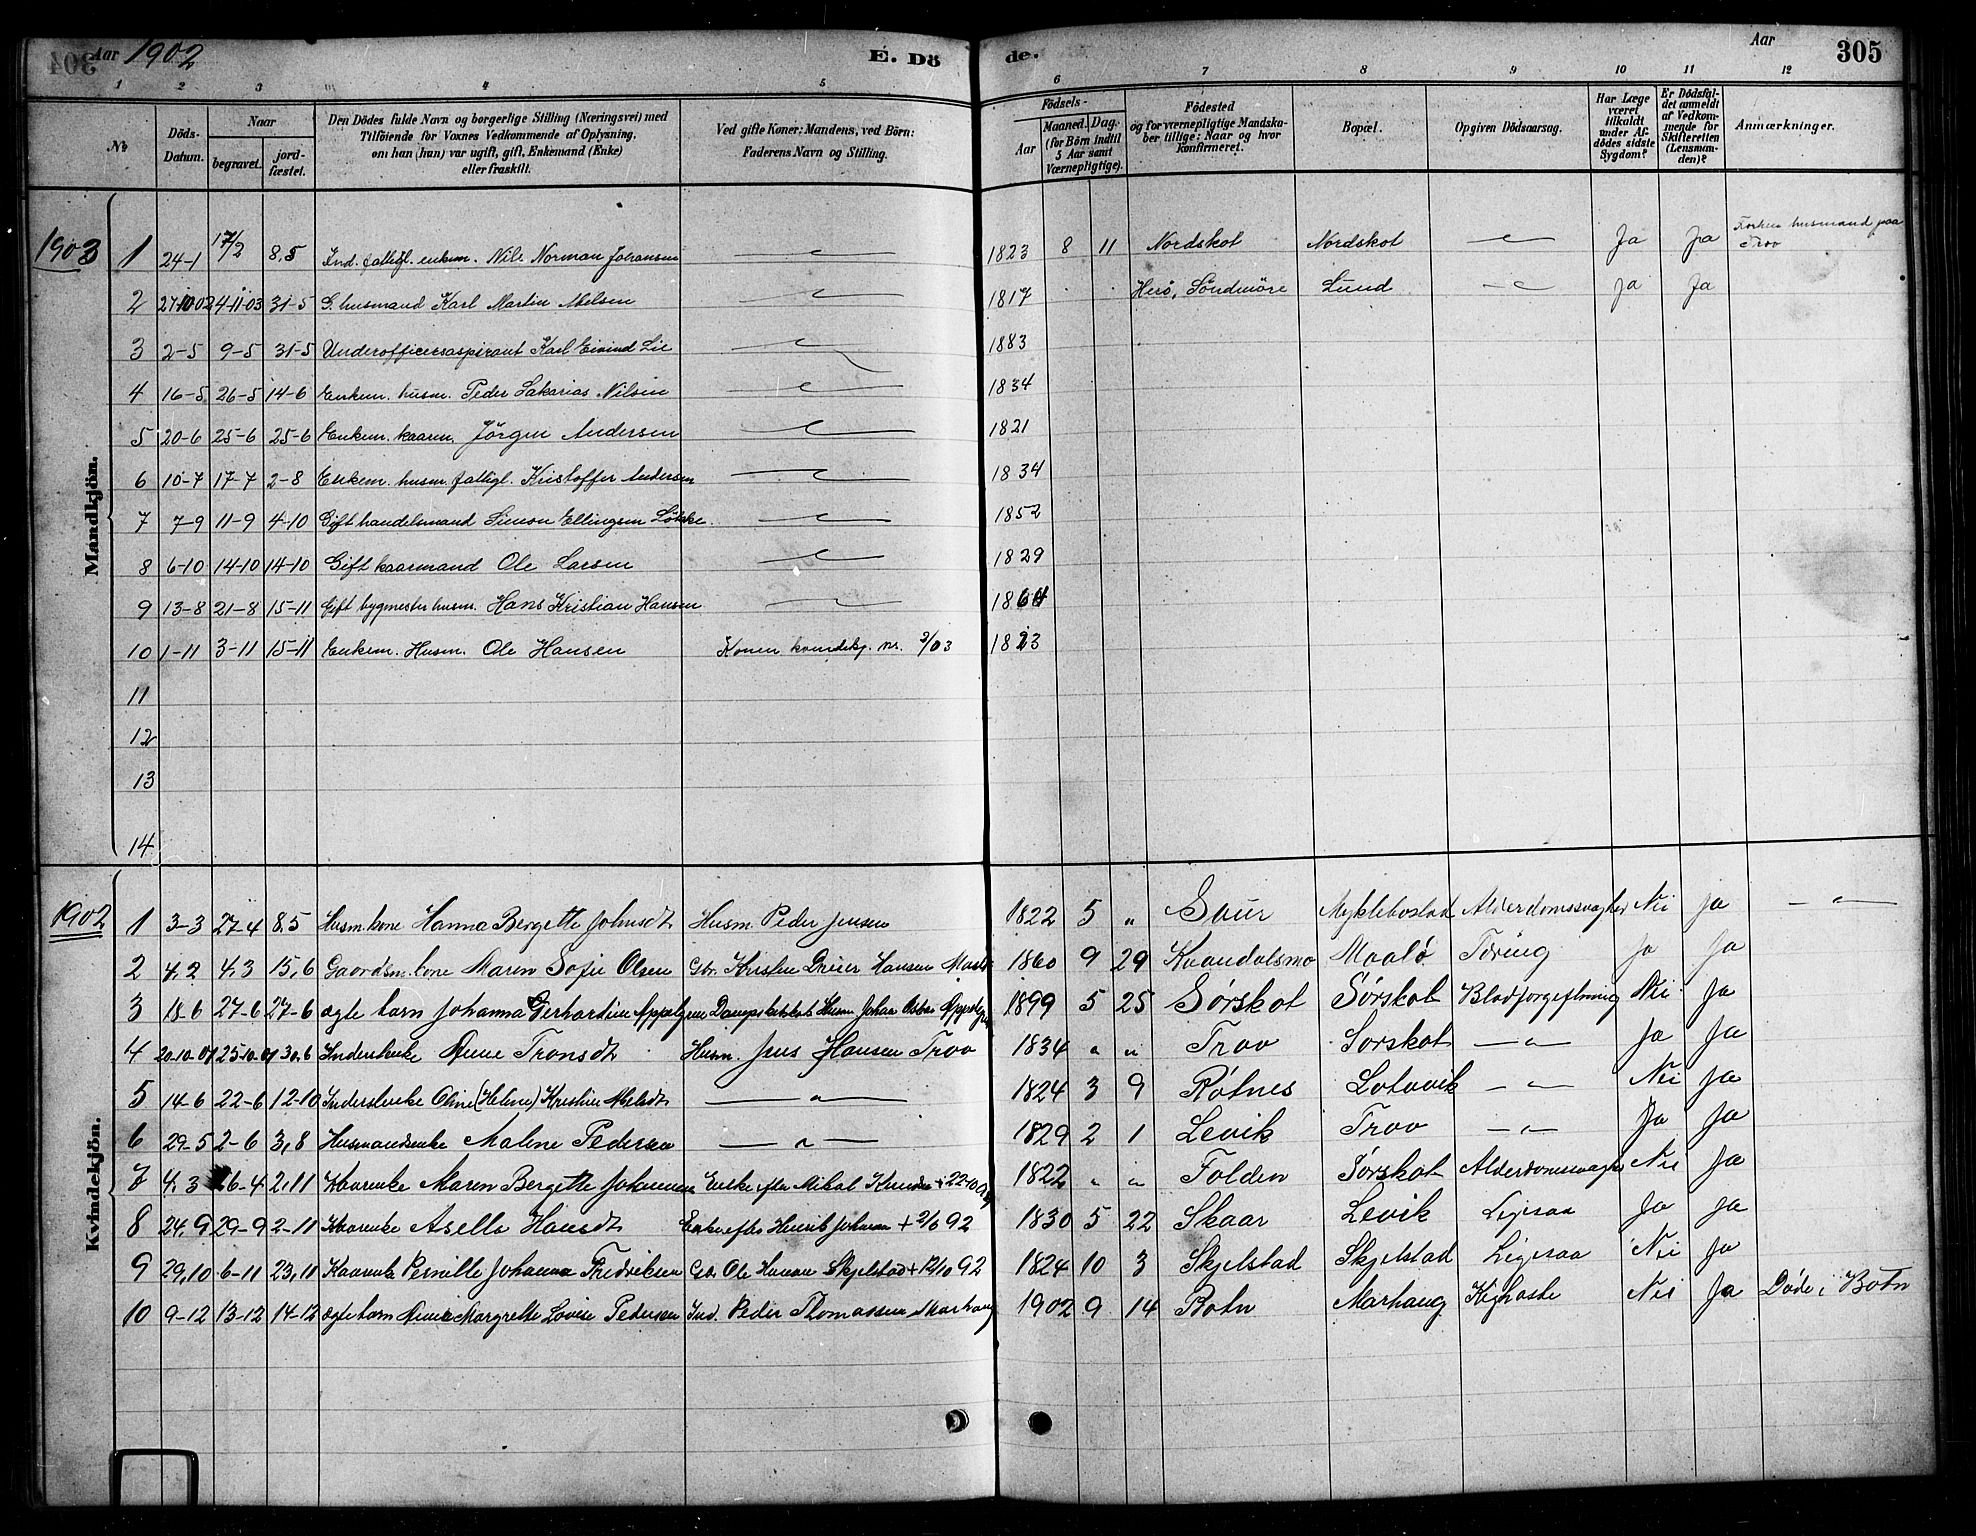 Aar 1902
E. Dö
de.
Aar
305
1 2 3 4 5 6 7 8 9 10 11 12
No
Döds-Datum.
Naar
begravet.
jord-fæstet.
Den Dödes fulde Navn og borgerlige Stilling (Næringsvei) med
Tilföiende for Voxnes Vedkommende af Oplysning,
om han (hun) var ugift, gift, Enkemand (Enke)
eller fraskilt.
Ved gifte Koner: Mandens, ved Börn:
Faderens Navn og Stilling.
Födsels-
Aar
Maaned. Dag.
(for Börn indtil
5 Aar samt
Værnepligtige).
Födested
og for værnepligtige Mandska-
ber tillige: Naar og hvor
konfirmeret.
Bopæl.
Opgiven Dödsaarsag.
Har Læge
været
tilkaldt
under Af-
dödes sidste
Sygdom?
Er Dödsfal-
det anmeldt
af Vedkom-
mende for
Skifteretten
(Lensman-
den)?
Anmærkninger.
Mandkjön.
1903 1 24-1 17/2 8,5 Ind. fattigl. enkem. Nils Norman Johansen 1823 8 11 Nordskot Nordskot Ja Ja husmand paa Trov
2 27-10-02 4-11-03 31-5 G. husmand Karl Martin Melsen 1817 Herö, Söndmöre Lund Ja Ja
3 2-5 9-5 31-5 Underofficersaspirant Karl Eivind Lie 1883
4 16-5 26-5 14-6 Enkem. husm. Peder Sakarias Nilsen 1834
5 20-6 25-6 25-6 Enkem. kaarm. Jörgen Andersen 1821
6 10-7 17-7 2-8 Enkem. husm. fattigl. Kristoffer Andersen 1834
7 7-9 11-9 4-10 Gift handelsmand Simon Ellingsen 1852
8 6-10 14-10 14-10 Gift kaarmand Ole Larsen 1829
9 13-8 21-8 15-11 Gift bygmester husm. Hans Kristian Hansen
10 1-11 3-11 15-11 Enkem. Husm. Ole Hansen Konen kvindekj. nr. /03
11
12
13
14
Kvindekjön.
1902 1 3-3 27-4 8,5 Husm. kone Hanna Bergette Johnsdt Husm. Peder Jensen 1822 5 " Svur Myklebostad Alderdomssvaghed Nei Ja — " —
2 4,2 4,3 15,6 Gaardsm. kone Maren Sofie Olsen Gbr. Kristen Dreier Hansen 1860 9 29 Kvandalsmo Maalö Tæring Ja Ja
3 18-6 27-6 27-6 ægte barn Johanna Gerhardine 1899 5 25 Sørskot Sørskot Blodforgiftning Nei Ja
4 20-10-01 25-10-01 30,6 Inderstenke Anne Tronsdt Husm. Jens Hansen Trov 1834 " " Trov Sørskot — " — Ja Ja
5 14-6 22-6 12-10 Inderstenke Oline (Helene) Kristine — " — 1824 3 9 Røtnes Lotvvik — " — Nei Ja
6 29-5 2-6 3,8 Husmandsenke Malene Pedersen — " — 1829 2 1 Levik Trov — " — Ja Ja
7 4,3 26-4 2,11 Kaarenke Maren Bergette Johannesen Enke efter Mikal 1822 " " Folden Sørskot Alderdomssvaghed Nei Ja
8 24,9 29-9 2-11 Kaarenke Asella Hansdt Enke efter Henrik Johnsen + 2/6 92 1830 5 22 Skaar Levik Ligesaa Ja Ja
9 29,10 6-11 23,11 Kaarenke Pernille Johanna Fredriksen Gbr. Ole Hansen Skjelstad + 12/10 92 1824 10 3 Skjelstad Skjelstad Ligesaa Nei Ja
10 9-12 13-12 14-12 ægte barn Margrethe Lovise Pedersen Ind. Peder Thomassen Marhaug 1902 9 14 Botn Marhaug Kighoste Nei Ja Døde i Botn